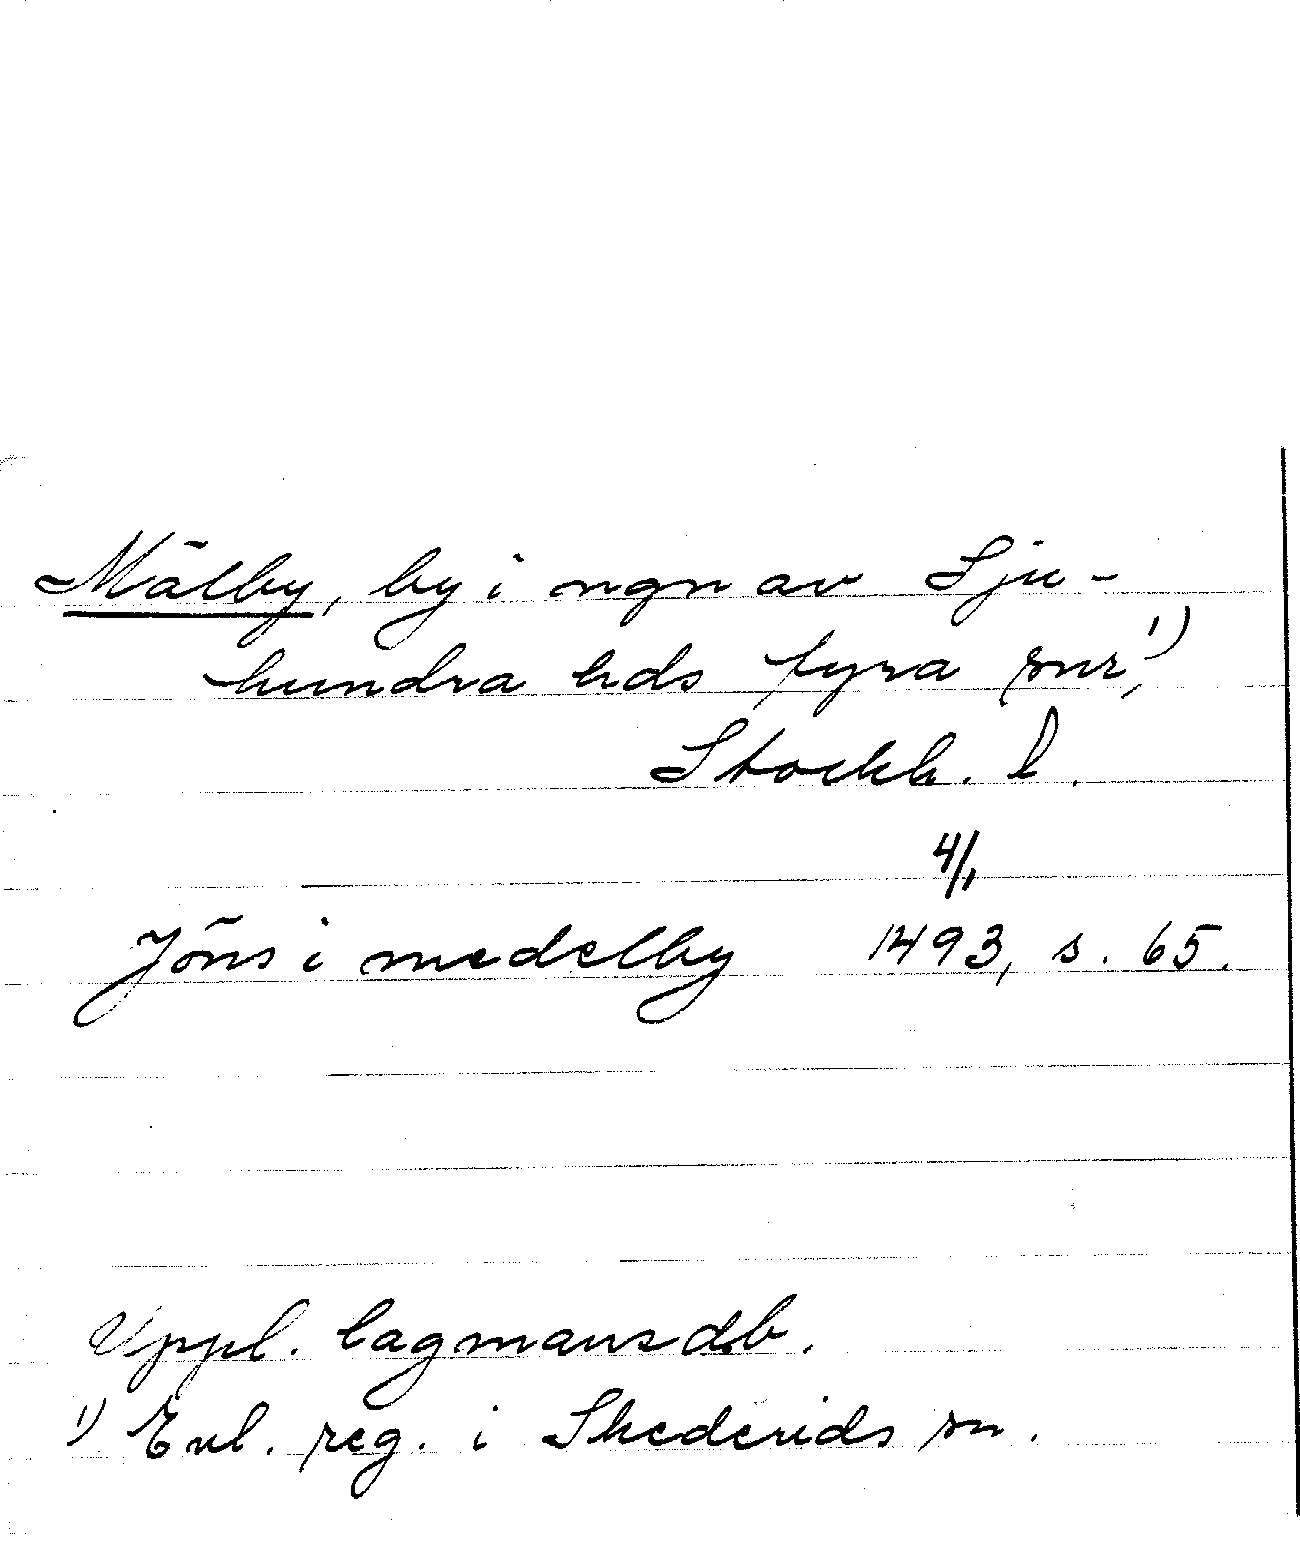 Mälby, by i ngn av Sju-
hundra hds fyra snr,¹⁾
Stockh. l.
4/1
Jöns i medelby 1493, s. 65.
Uppl. lagmansdb.
¹⁾ Enl. reg. i Skederids sn.